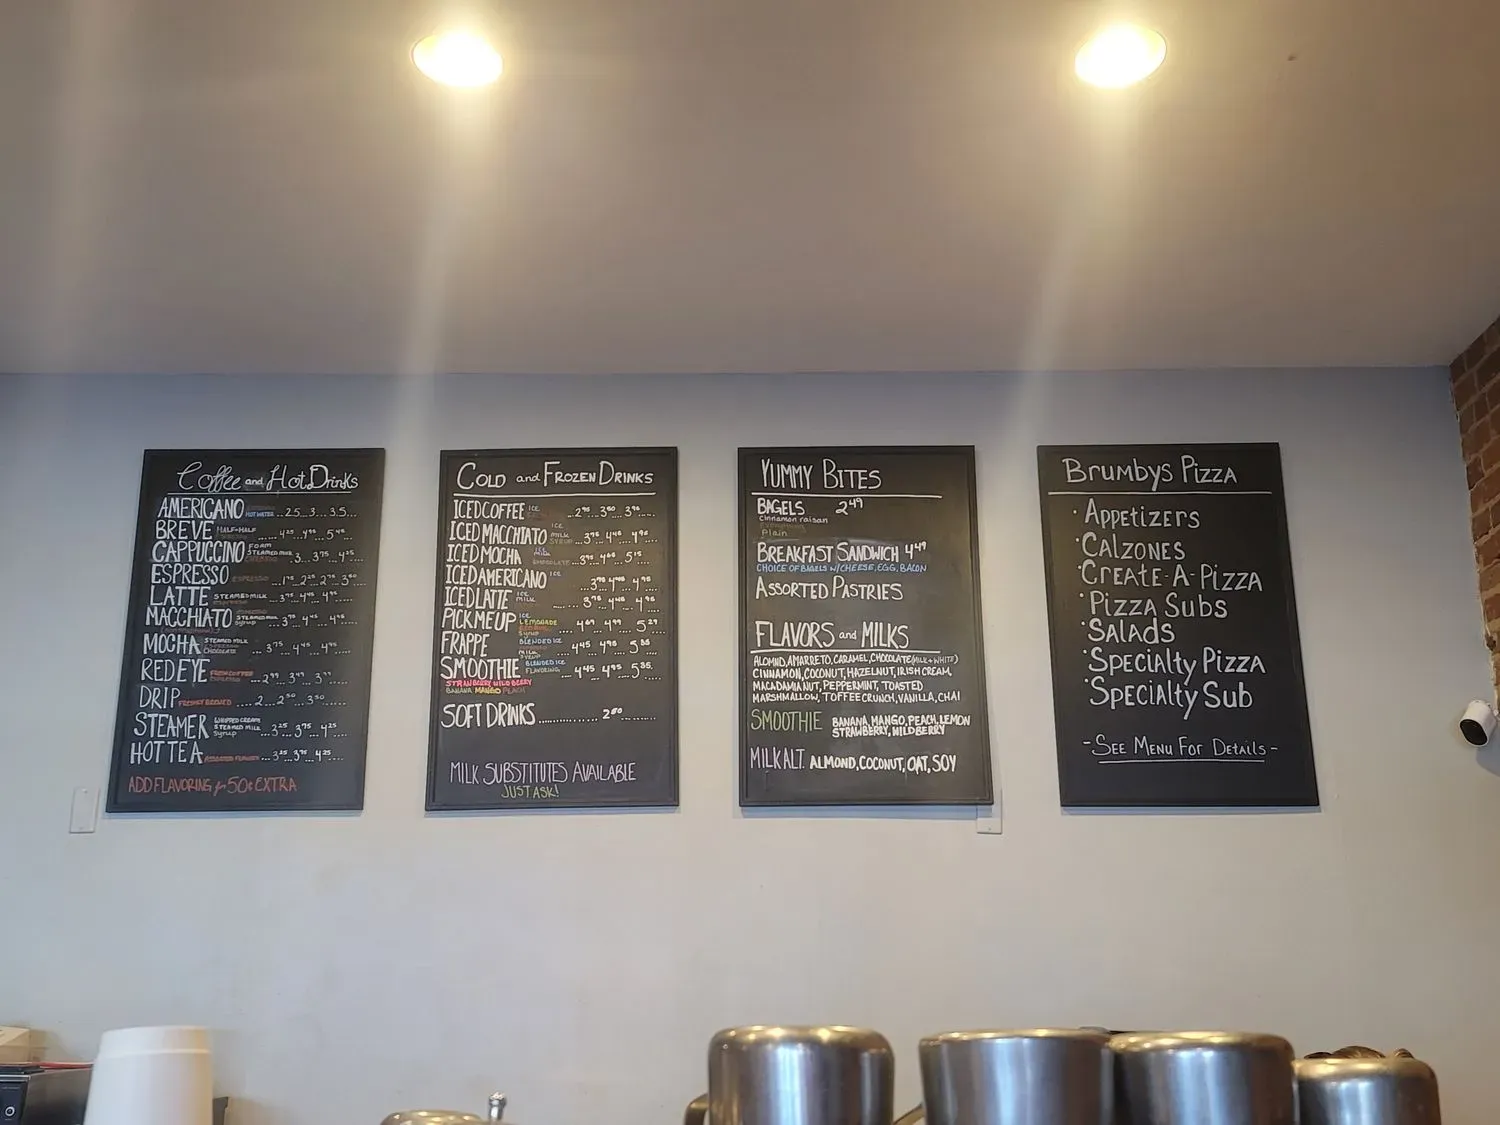 Coffee and Hot Drinks
AMERICANO HOT WATER ...2.5...3...3.5...
BREVE HALF-HALF ...4.25...4.95...5.45...
CAPPUCCINO FOAM STEAMED MILK ESPRESSO ...3...3.75...4.25...
ESPRESSO ESPRESSO ...1.75...2.25...2.75...3.50...
LATTE STEAMED MILK ESPRESSO ...3.75...4.45...4.95...
MACCHIATO ESPRESSO STEAMED MILK Syrup ...3.75...4.45...4.95...
MOCHA STEAMED MILK ESPRESSO CHOCOLATE ...3.75...4.45...4.95...
RED EYE FRESH COFFEE ESPRESSO ...2.99...3.49...3.99...
DRIP FRESHLY BREWED ....2...2.50...3.50....
STEAMER WHIPPED CREAM STEAMED MILK Syrup ...3.25...3.75...4.25
HOT TEA ASSORTED FLAVORS ...3.25...3.75...4.25
ADD FLAVORING for 50¢ EXTRA
COLD and FROZEN DRINKS
ICED COFFEE ICE ...2.95...3.50...3.95...
ICED MACCHIATO ICE MILK SYRUP ...3.75...4.45...4.95...
ICED MOCHA Milk CHOCOLATE ...3.95...4.65...5.15...
ICED AMERICANO ICE ...3.75...4.45...4.95...
ICED LATTE ICE MILK ...3.75...4.45...4.95...
PICK ME UP ICE LEMONADE RED BULL Syrup ....4.69...4.99...5.29...
FRAPPE BLENDED ICE ESPRESSO MILK SYRUP ...4.45...4.95...5.35...
SMOOTHIE BLENDED ICE FLAVORING ...4.45...4.95...5.35...
STRAWBERRY WILD BERRY
BANANA MANGO PEACH
SOFT DRINKS............2.50.......
MILK SUBSTITUTES AVAILABLE
JUST ASK!
YUMMY BITES
BAGELS 2.49
Cinnamon raisan
Everything
Plain
BREAKFAST SANDWICH 4.49
CHOICE OF BAGELS W/CHEESE, EGG, BACON
ASSORTED PASTRIES
FLAVORS and MILKS
ALOMND, AMARRETO, CARAMEL, CHOCOLATE (MILK + WHITE)
CINNAMON, COCONUT, HAZELNUT, IRISH CREAM,
MACADAMIA NUT, PEPPERMINT, TOASTED
MARSHMALLOW, TOFFEE CRUNCH, VANILLA, CHAI
SMOOTHIE BANANA, MANGO, PEACH, LEMON
STRAWBERRY, WILDBERRY
MILK ALT. ALMOND, COCONUT, OAT, SOY
BRUMBYS PIZZA
· APPETIZERS
· CALZONES
· CREATE-A-PIZZA
· PIZZA SUBS
· SALADS
· SPECIALTY PIZZA
· SPECIALTY SUB
-SEE MENU FOR DETAILS-